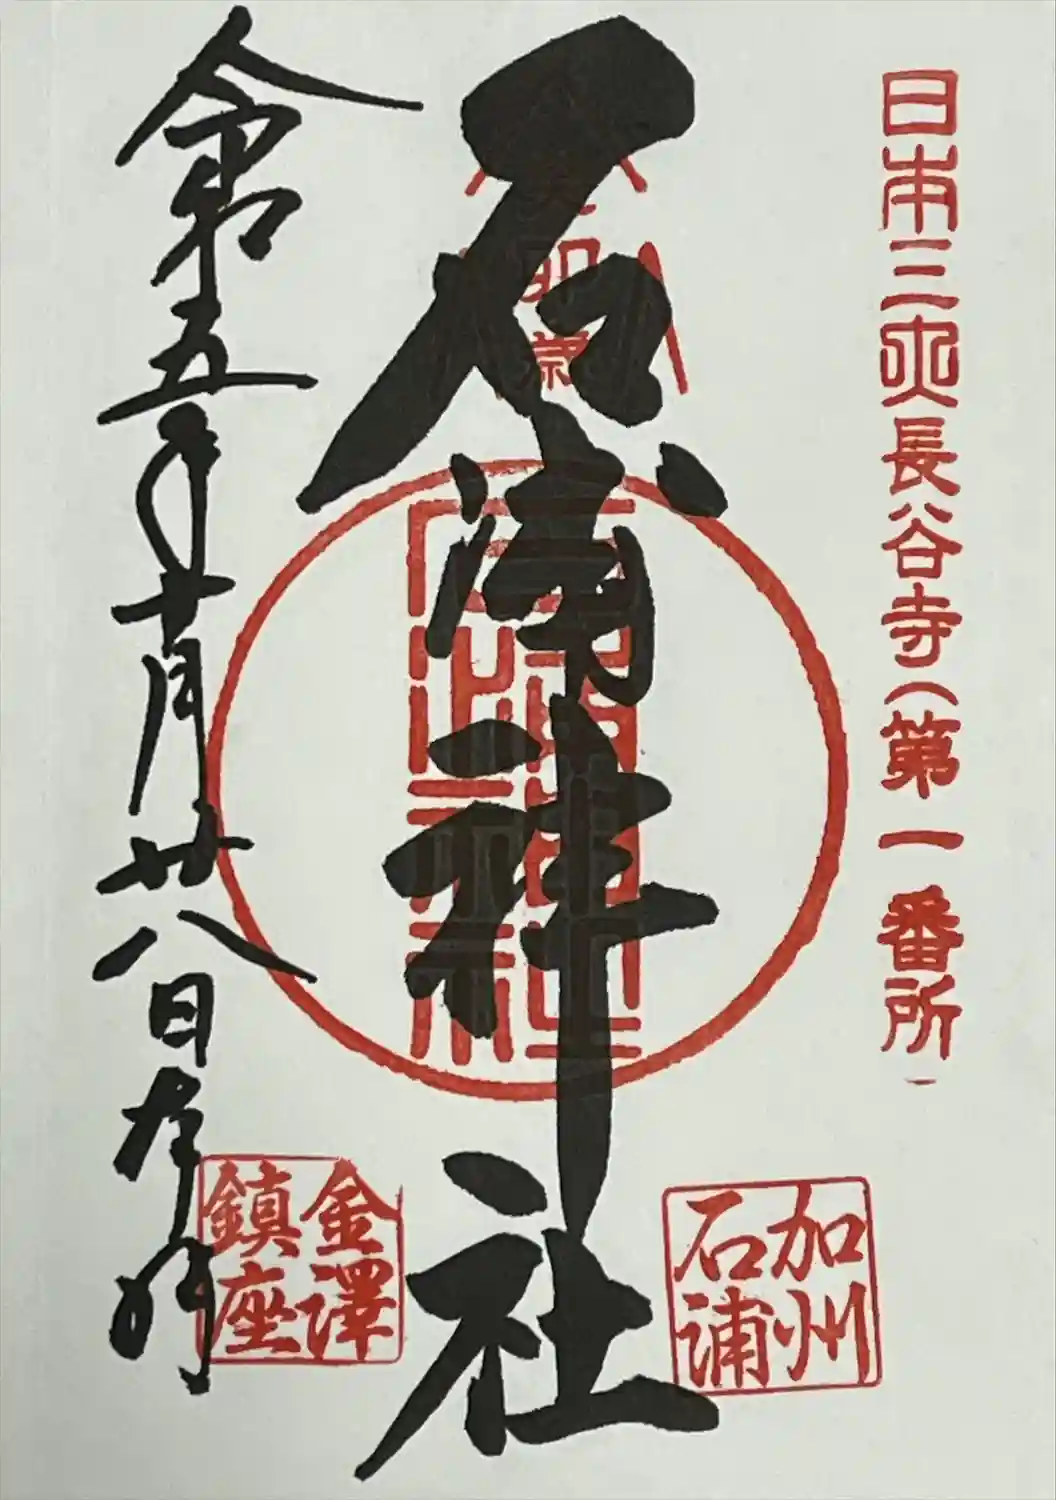 日本三大長谷寺(第一番所)
加州
石浦
石浦神社
石浦
神社
令和五年十月廿八日
金澤
鎮座